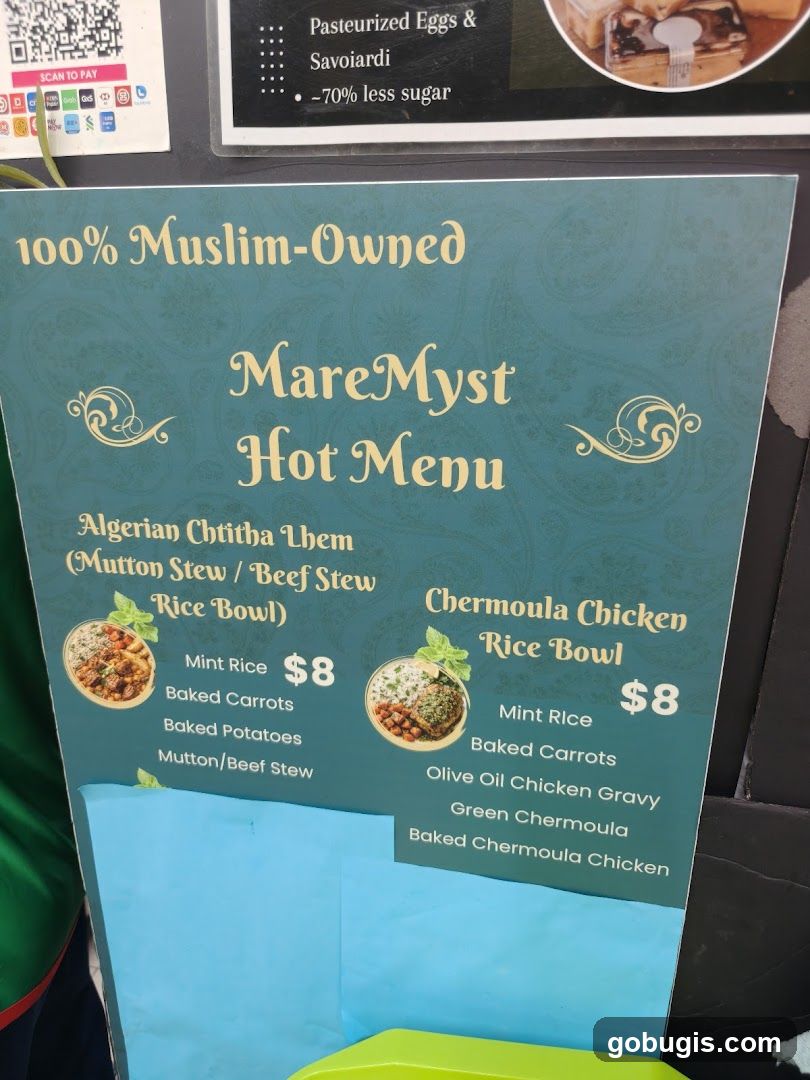 SCAN TO PAY
Pasteurized Eggs &
Savoiardi
• ~70% less sugar
100% Muslim-Owned
MareMyst
Hot Menu
Algerian Chtitha Lhem
(Mutton Stew / Beef Stew
Rice Bowl)
Mint Rice $8
Baked Carrots
Baked Potatoes
Mutton/Beef Stew
Chermoula Chicken
Rice Bowl
$8
Mint RIce
Baked Carrots
Olive Oil Chicken Gravy
Green Chermoula
Baked Chermoula Chicken
gobugis.com